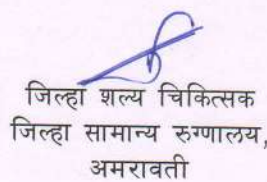 जिल्हा शल्य चिकित्सक
जिल्हा सामान्य रुग्णालय,
अमरावती